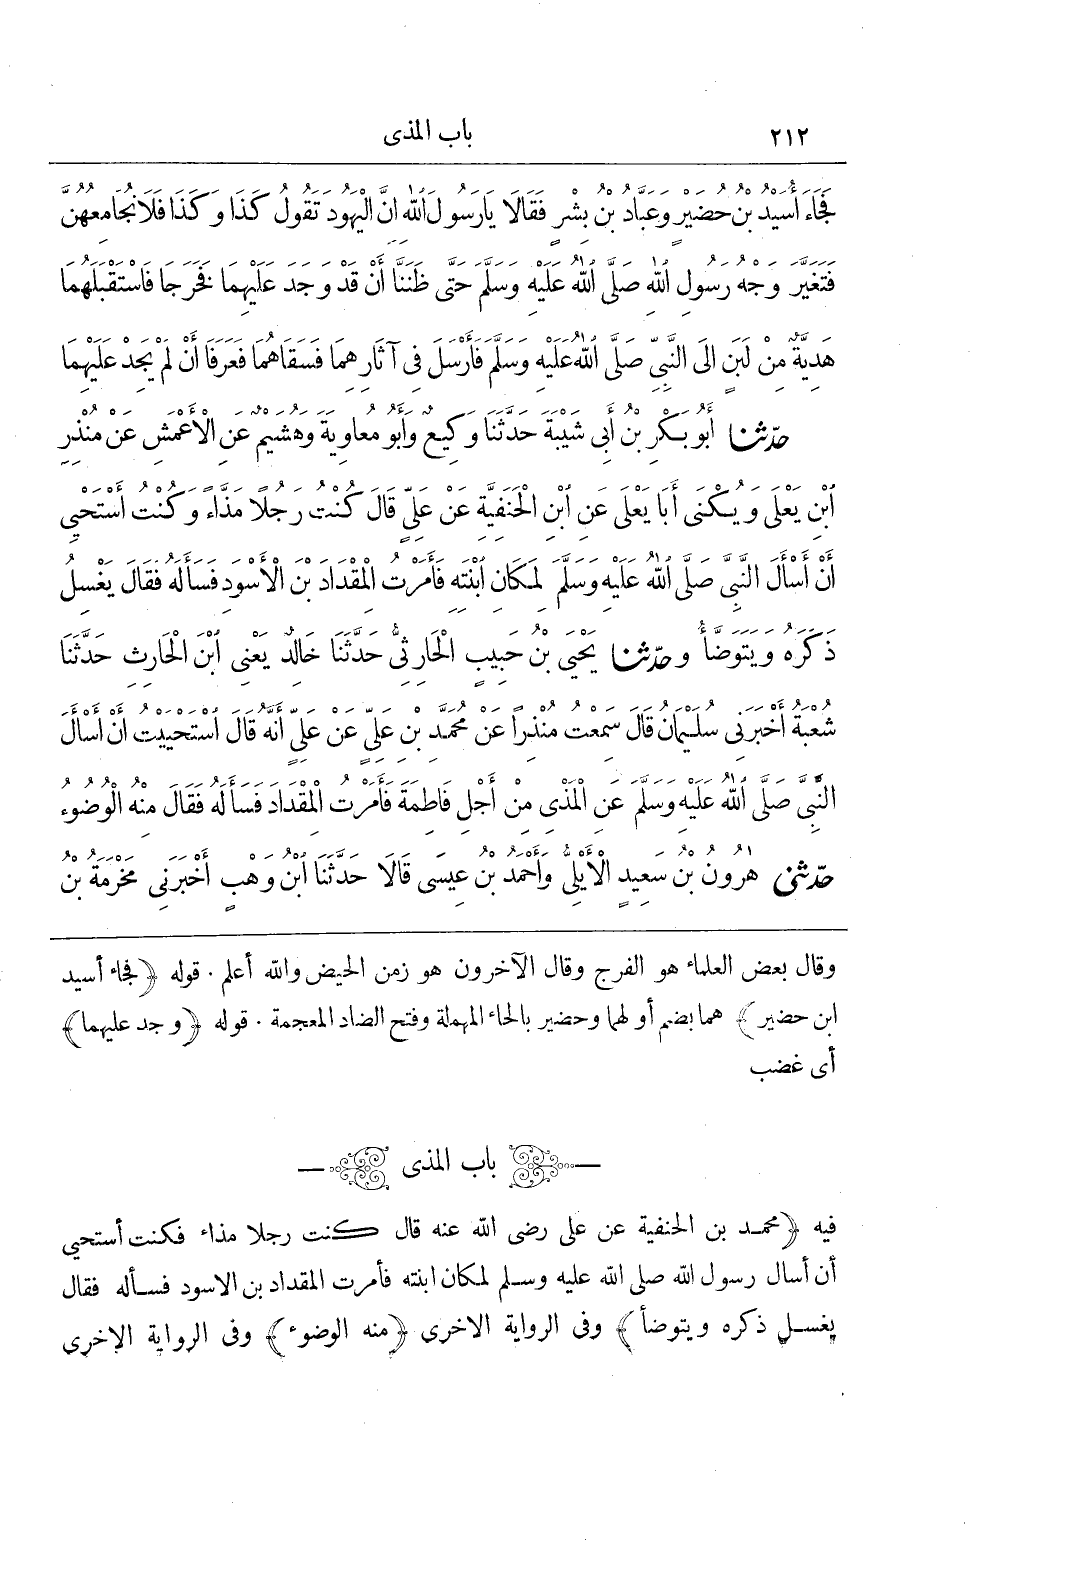 ٢١٢ باب المذى
فَجَاءَ أُسَيْدُ بْنُ حُضَيْرٍ وَعَبَّادُ بْنُ بِشْرٍ فَقَالَا يَارَسُولَ اللهِ انَّ الْيَهُودَ تَقُولُ كَذَا وَكَذَا فَلَا نُجَامِعُهُنَّ
فَتَغَيَّرَ وَجْهُ رَسُولِ اللهِ صَلَّى اللهُ عَلَيْهِ وَسَلَّمَ حَتَّى ظَنَنَّا أَنْ قَدْ وَجَدَ عَلَيْهِمَا فَخَرَجَا فَاسْتَقْبَلَهُمَا
هَدِيَّةٌ مِنْ لَبَنٍ الَى النَّبِىِّ صَلَّى اللهُ عَلَيْهِ وَسَلَّمَ فَأَرْسَلَ فِى آثَارِهِمَا فَسَقَاهُمَا فَعَرَفَا أَنْ لَمْ يَجِدْ عَلَيْهِمَا
حدّثنا أَبُو بَكْرِ بْنُ أَبِى شَيْبَةَ حَدَّثَنَا وَكِيعٌ وَأَبُو مُعَاوِيَةَ وَهُشَيْمٌ عَنِ الْأَعْمَشِ عَنْ مُنْذِرِ
ابْنِ يَعْلَى وَيُكْنَى أَبَا يَعْلَى عَنِ ابْنِ الْحَنَفِيَّةِ عَنْ عَلِىٍّ قَالَ كُنْتُ رَجُلًا مَذَّاءً وَكُنْتُ أَسْتَحْيِى
أَنْ أَسْأَلَ النَّبِىَّ صَلَّى اللهُ عَلَيْهِ وَسَلَّمَ لِمَكَانِ ابْنَتِهِ فَأَمَرْتُ الْمِقْدَادَ بْنَ الْأَسْوَدِ فَسَأَلَهُ فَقَالَ يَغْسِلُ
ذَكَرَهُ وَيَتَوَضَّأُ وحدّثنا يَحْيَى بْنُ حَبِيبٍ الْحَارِثِىُّ حَدَّثَنَا خَالِدٌ يَعْنِى ابْنَ الْحَارِثِ حَدَّثَنَا
شُعْبَةُ أَخْبَرَنِى سُلَيْمَانُ قَالَ سَمِعْتُ مُنْذِرًا عَنْ مُحَمَّدِ بْنِ عَلِىٍّ عَنْ عَلِىٍّ أَنَّهُ قَالَ اسْتَحْيَيْتُ أَنْ أَسْأَلَ
النَّبِىَّ صَلَّى اللهُ عَلَيْهِ وَسَلَّمَ عَنِ الْمَذْىِ مِنْ أَجْلِ فَاطِمَةَ فَأَمَرْتُ الْمِقْدَادَ فَسَأَلَهُ فَقَالَ مِنْهُ الْوُضُوءُ
حدّثنى هٰرُونُ بْنُ سَعِيدٍ الْأَيْلِىُّ وَأَحْمَدُ بْنُ عِيسَى قَالَا حَدَّثَنَا ابْنُ وَهْبٍ أَخْبَرَنِى مَخْرَمَةُ بْنُ
وقال بعض العلماء هو الفرج وقال الآخرون هو زمن الحيض والله أعلم . قوله ﴿فجاء أسيد
ابن حضير﴾ هما بضم أولهما وحضير بالحاء المهملة وفتح الضاد المعجمة . قوله ﴿وجد عليهما﴾
أى غضب
باب المذى
فيه ﴿محمد بن الحنفية عن على رضى الله عنه قال كنت رجلا مذاء فكنت أستحيى
أن أسال رسول الله صلى الله عليه وسلم لمكان ابنته فأمرت المقداد بن الاسود فسأله فقال
يغسل ذكره ويتوضأ﴾ وفى الرواية الاخرى ﴿منه الوضوء﴾ وفى الرواية الاخرى